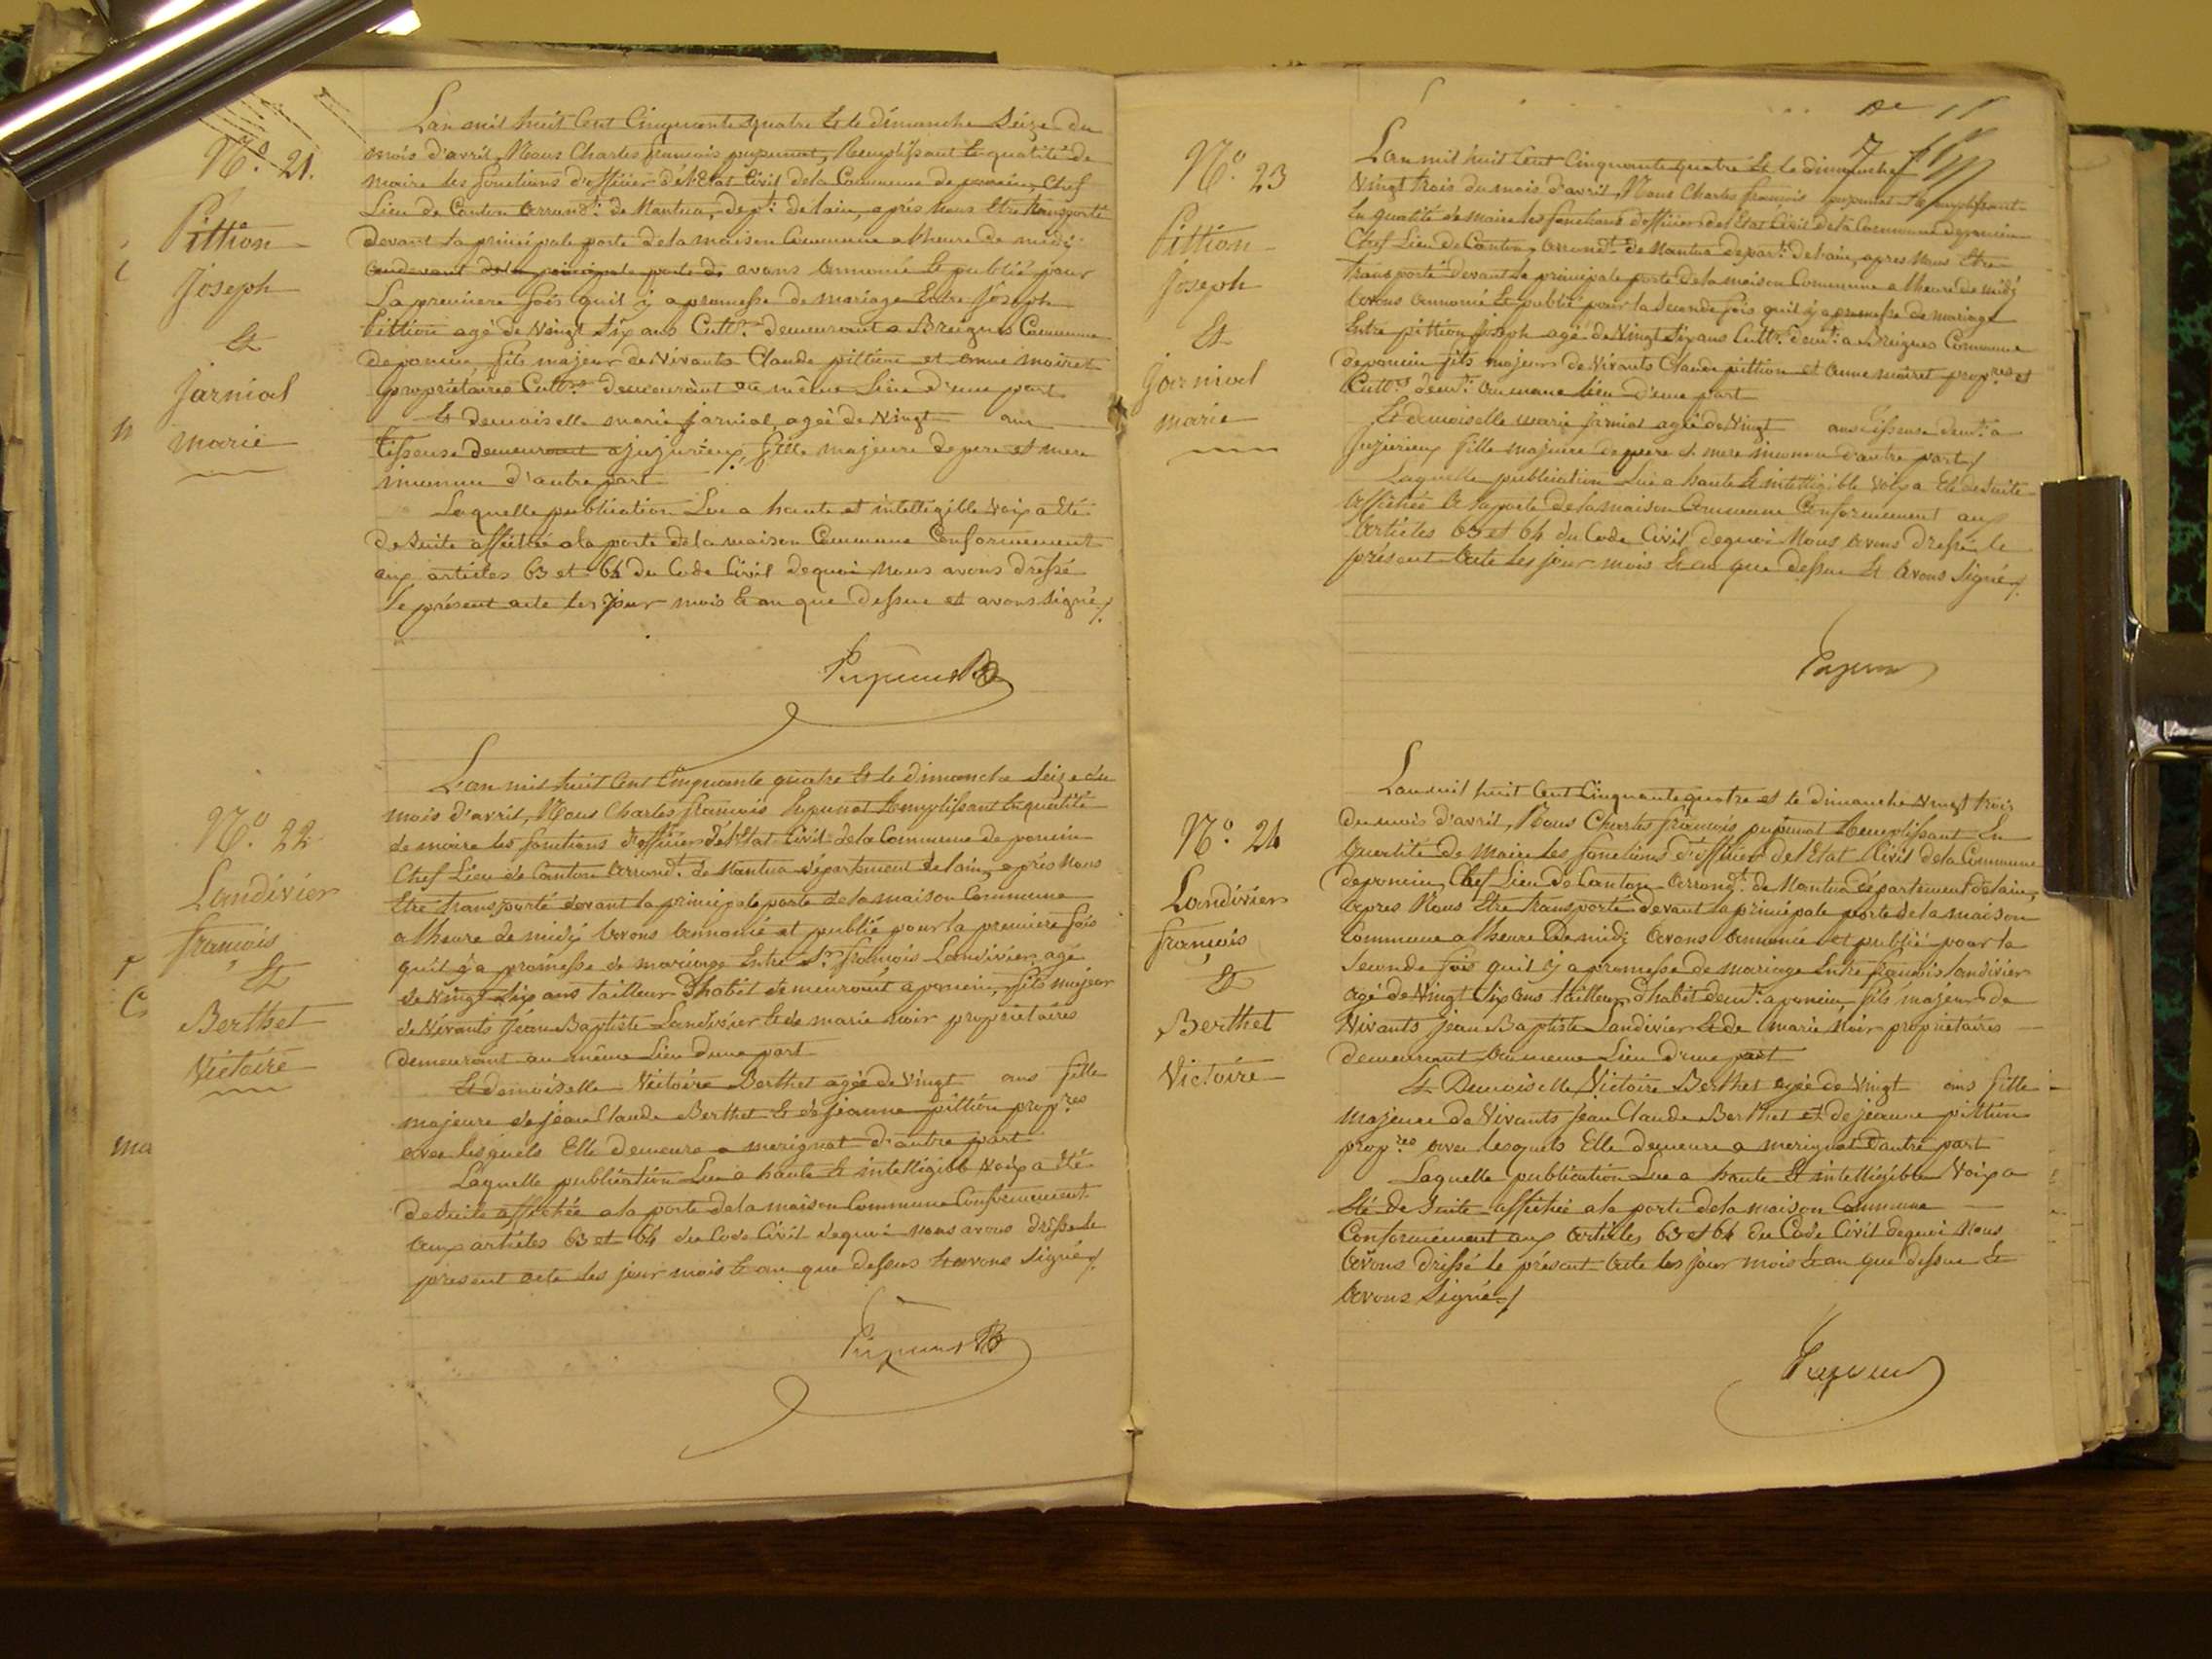 N.° 21.
Pittion
Joseph
&
Jarnial
marie
L'an mil huit Cent Cinquante quatre Et le dimanche Seize du
mois d'avril, Nous Charles françois pupunat, Remplissant En qualité de
maire les fonctions d'officier dél'Etat Civil dela Commune de poncin, Chef
Lieu de Canton arrond.t de Nantua, dep.t delain, après nous Etre transporté
devant la principale porte dela maison Commune a lheure de midi
audevant dela principale porte de avons annoncé Et publié pour
la premiere fois quil y a promesse de mariage Entre Joseph
Pittion agé de Vingt Six ans Cult.r demeurant a Breignes Commune
deponcin, fils majeur de Vivants Claude pittion et anne moiret
propriétaires Cult.rs demeurant au même Lieu d'une part
Et demoiselle marie Jarnial, agée de Vingt ans
tisseuse demeurant a jujurieux, fille majeure de pere et mere
inconnu d'autre part
Laquelle publication Lue a haute et intelligible Voix a Eté
de Suite affichée ala porte dela maison Commune Conformement
aux articles 63 et 64 du Code Civil dequoi Nous avons dressé
le présent acte les jour mois & an que dessus et avons Signé /.
Pupunat
N.° 22
Landivier
françois
&
Berthet
Victoire
L'an mil huit Cent Cinquante quatre Et le dimanche Seize du
mois d'avril, Nous Charles françois Pupunat Remplissant En qualité
de maire les fonctions d'officier dél'Etat Civil dela Commune de poncin
Chef Lieu de Canton arrond.t de Nantua département delain, après Nous
Etre transporté devant la principale porte dela maison Commune
a lheure de midi avons annoncé et publié pour la premiere fois
qu'il y a promesse de mariage Entre S.r françois Landivier agé
de Vingt Six ans tailleur D'habit demeurant a poncin, fils majeur
de Vivants Jean Baptiste Landivier & de marie noir propriétaires
demeurant au même Lieu dune part
Et demoiselle Victoire Berthet agée de Vingt ans fille
majeure de jean Claude Berthet & de jeanne pittion prop.res
avec lesquels Elle demeure a merignat d'autre part
Laquelle publication Lue a haute & intelligible Voix a Eté
de Suite affichée a la porte dela maison Commune Conformement
aux articles 63 et 64 du Code Civil dequoi nous avons dressé le
présent acte les jour mois & an que dessus & avons Signé /.
Pupunat
N.° 23
Pittion
Joseph
&
Jarnial
marie
L'an mil huit Cent Cinquante quatre Et le dimanche
Vingt trois du mois d'avril, Nous Charles françois pupunat Remplissant
En qualité de maire les fonctions d'officier del'Etat Civil dela Commune deponcin
Chef Lieu de Canton, arrond.t de Nantua depar.t delain, apres Nous Etre
transporté devant la principale porte dela maison Commune a lheure de midi
avons annoncé Et publié pour la Seconde fois quil y a promesse de mariage
Entre pittion joseph agé de Vingt Six ans Cult.r dem.t a Breignes Commune
deponcin fils majeur de Vivants Claude pittion et anne moiret prop.res et
Cult.rs dem.t au meme Lieu d'une part
Et demoiselle marie jarnial agée de Vingt ans tisseuse dem.t a
Jujurieux fille majeure de pere & mere inconnu d'autre part /.
Laquelle publication Lue a haute & intelligible Voix a Eté de Suite
affichée a la porte dela maison Commune Conformement aux
articles 63 et 64 du Code Civil dequoi Nous avons dressé le
présent acte les jour mois & an que dessus Et avons Signé /.
N.° 24
Landivier
françois
&
Berthet
Victoire
L'an mil huit Cent Cinquante quatre et le dimanche Vingt trois
du mois d'avril, Nous Charles françois pupunat Remplissant En
qualité de maire les fonctions d'officier del'Etat Civil dela Commune
deponcin, Chef Lieu de Canton arrond.t de Nantua département delain,
apres Nous Etre transporté devant la principale porte dela maison
Commune a lheure de midi avons annoncé et publié pour la
Seconde fois quil y a promesse de mariage Entre francois landivier
agé de Vingt Six ans tailleur d'habit dem.t a poncin fils majeur de
Vivants jean Baptiste Landivier & de marie noir propriétaires
demeurant au meme Lieu d'une part
Et Demoiselle Victoire Berthet agée de Vingt ans fille
majeure de Vivants Jean Claude Berthet et de jeanne pittion
prop.res avec lesquels Elle demeure a merignat d'autre part
Laquelle publication Lue a haute Et intelligible Voix a
Eté de Suite affichée a la porte dela maison Commune
Conformement aux articles 63 et 64 du Code Civil dequoi Nous
avons dressé le présent acte les jour mois & an que dessus &
avons Signé /